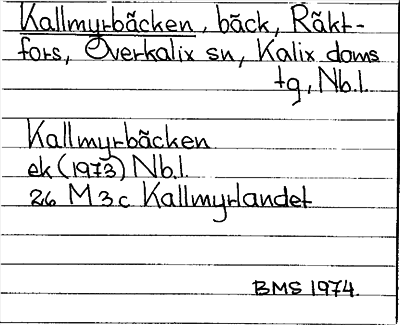 Kallmyrbäcken, bäck, Räkt-
fors, Överkalix sn, Kalix doms
tg, Nb.l.
Kallmyrbäcken
ek (1973) Nb.l.
26 M 3 c Kallmyrlandet
BMS 1974.